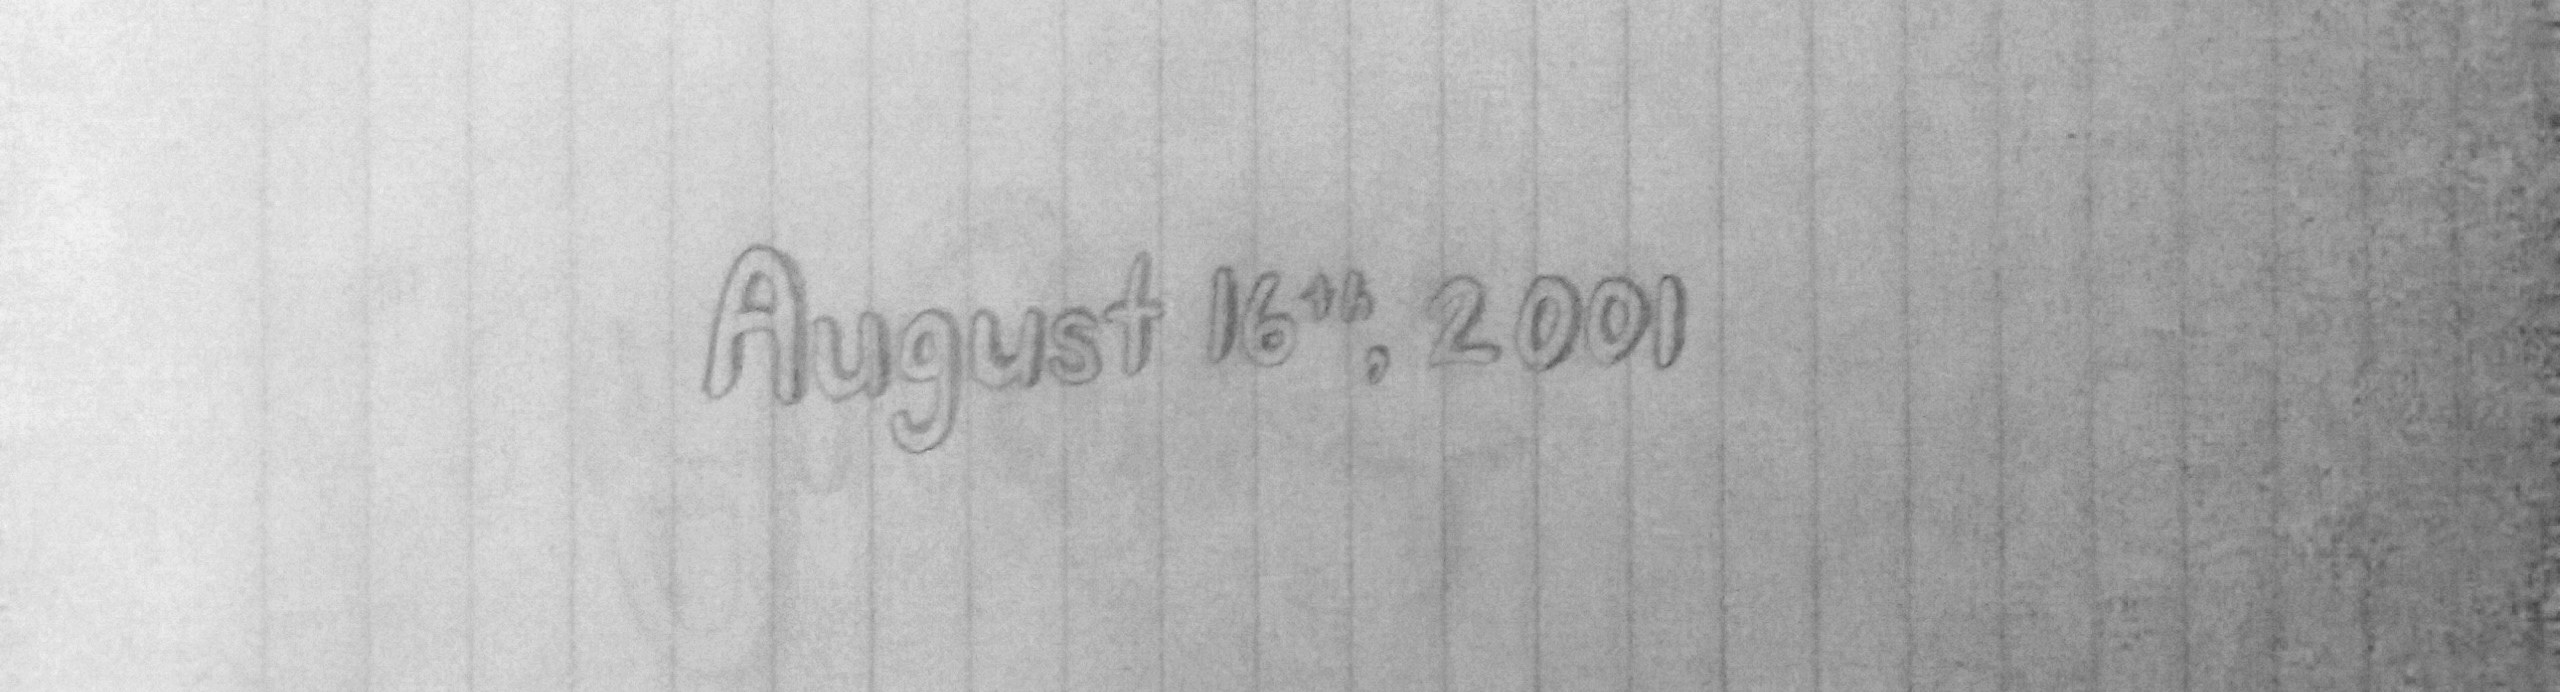 August 16th, 2001